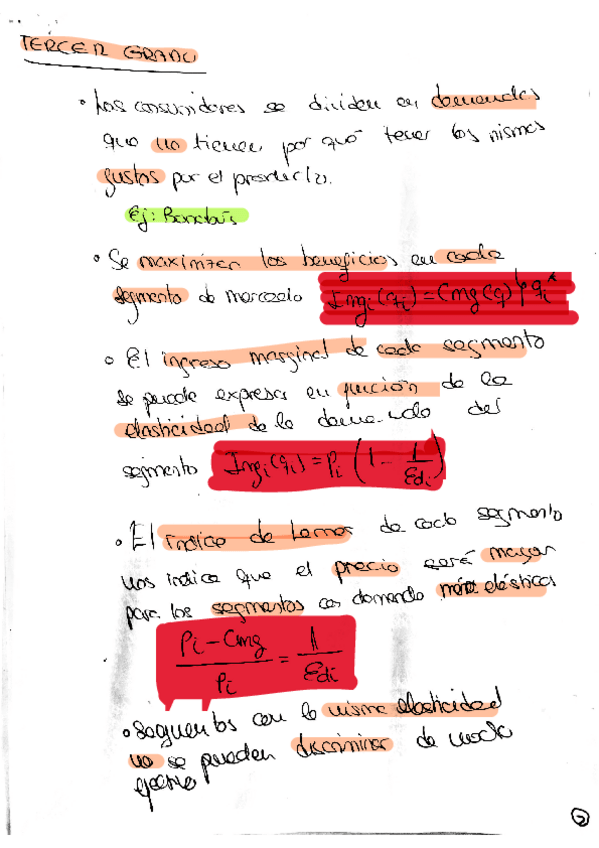 TERCER GRADO
• Los consumidores se dividen en demandas
que no tienen por qué tener los mismos
gustos por el producto.
Ej: Bonobús
• Se maximizan los beneficios en cada
segmento de mercado Img i (qi) = Cmg(q) → qi*
• El ingreso marginal de cada segmento
se puede expresar en función de la
elasticidad de la demanda del
segmento Img i (qi) = Pi (1 - 1/Edi)
• El índice de Lerner de cada segmento
nos indica que el precio será mayor
para los segmentos con demanda más elástica
(Pi - Cmg)/Pi = 1/Edi
• Segmentos con la misma elasticidad
no se pueden discriminar de modo
efectivo
2